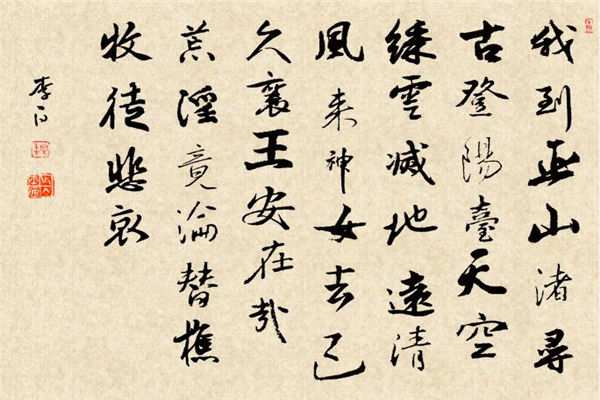 我到巫山渚尋
古登陽臺天空
綵雲滅地遠清
風来神女去已
久襄王安在哉
荒淫竟淪替樵
牧徒悲哀
李